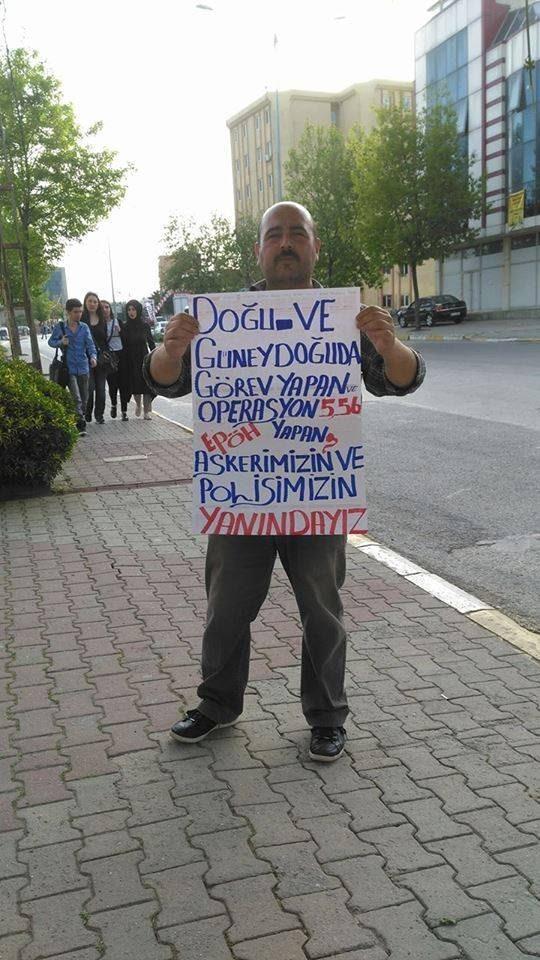 DOĞU-VE
GÜNEYDOĞUDA
GÖREV YAPAN VE
OPERASYON 5,56
EPÖH YAPAN
ASKERİMİZİN VE
POLİSİMİZİN
YANINDAYIZ